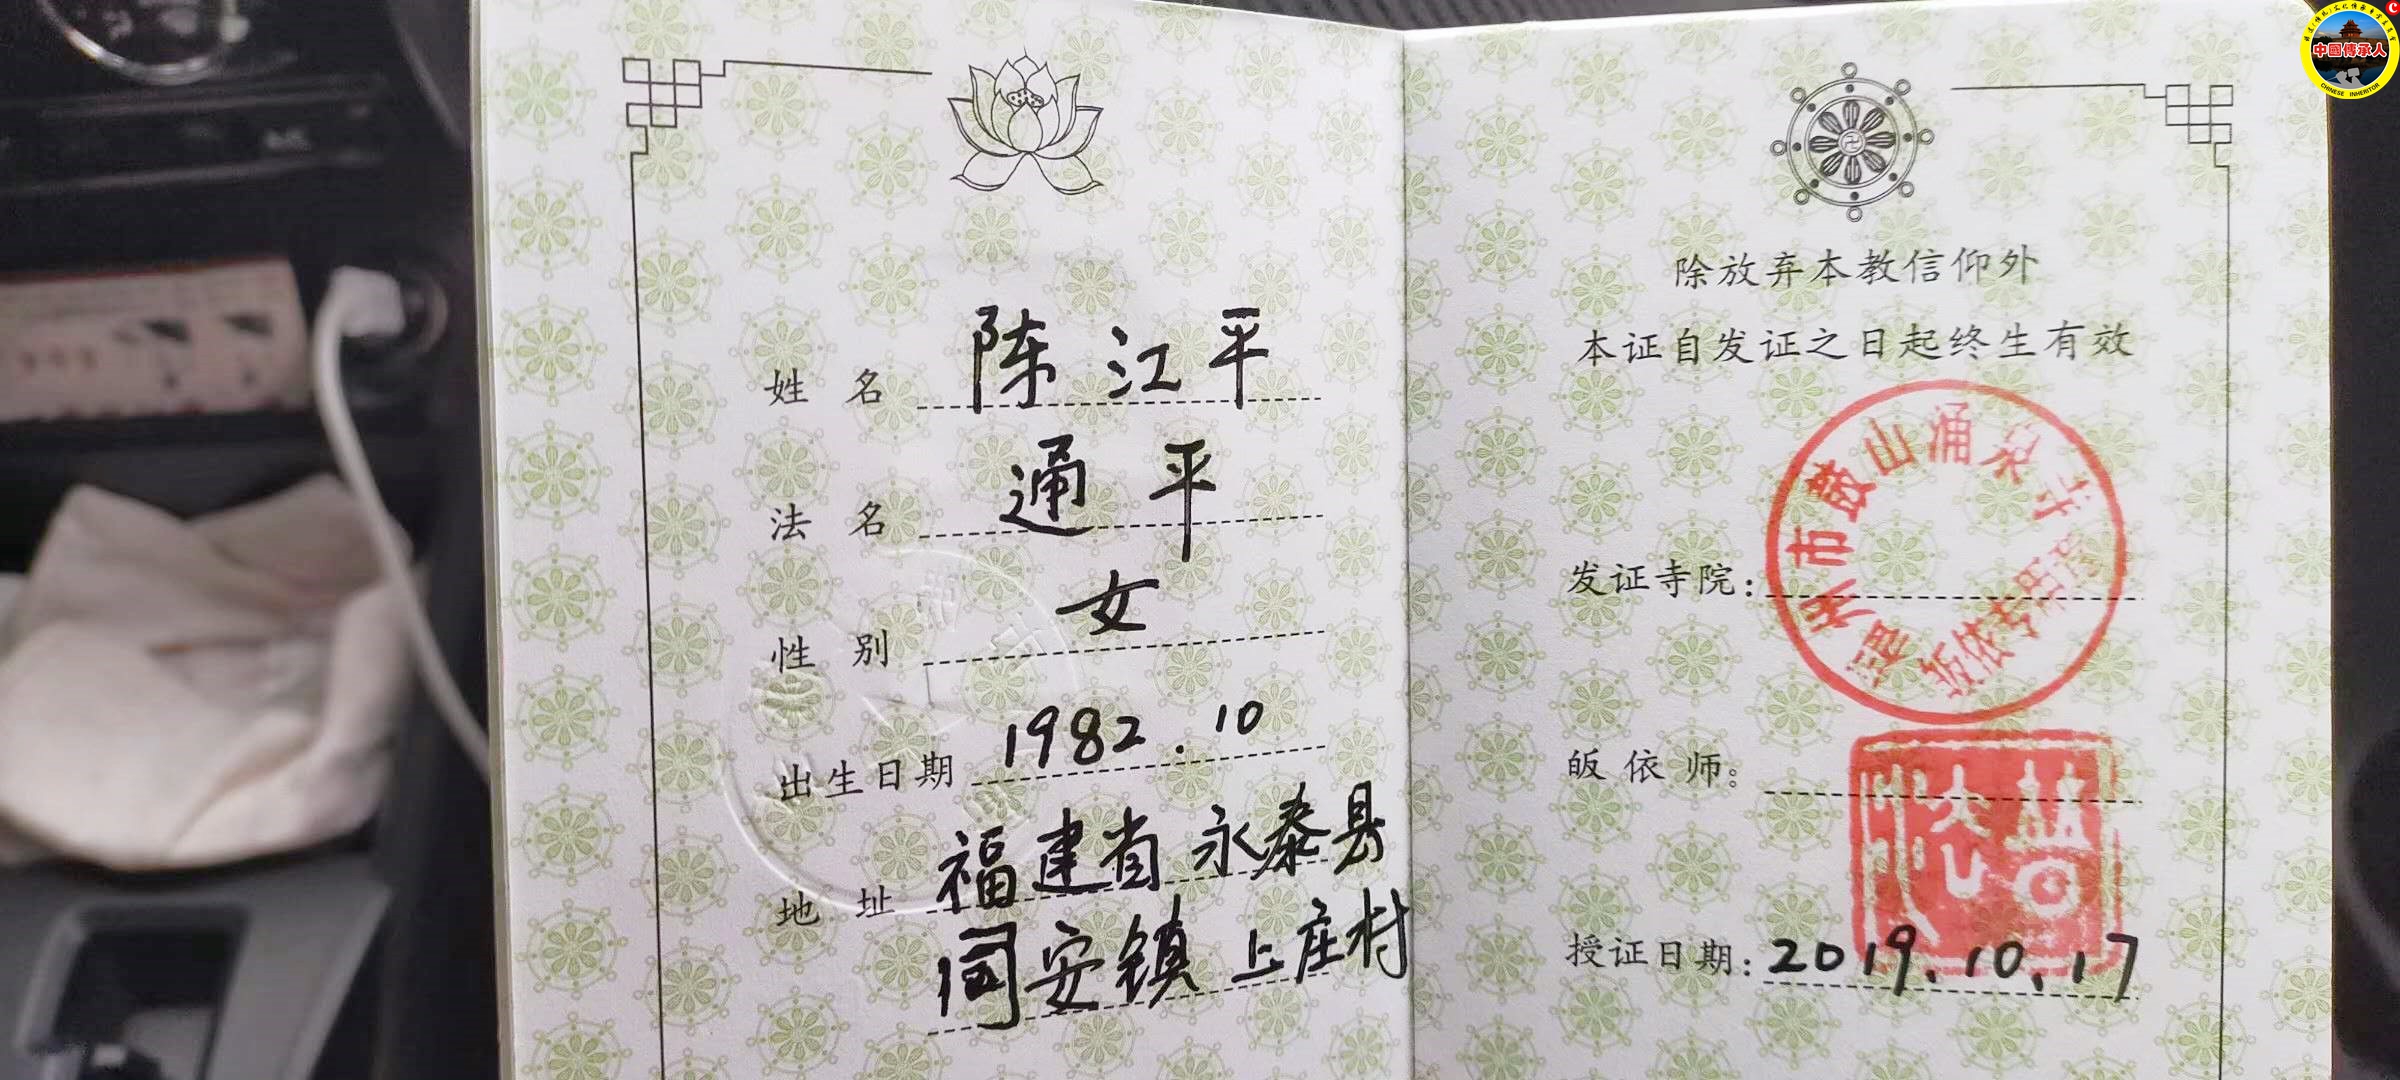 姓 名 陈江平
法 名 通平
性 别 女
出生日期 1982.10
地 址 福建省永泰县
同安镇上庄村
除放弃本教信仰外
本证自发证之日起终生有效
发证寺院：
福州市鼓山涌泉寺
皈依专用章
皈依师：
授证日期：2019.10.17
中國傳承人
CHINESE INHERITOR
C